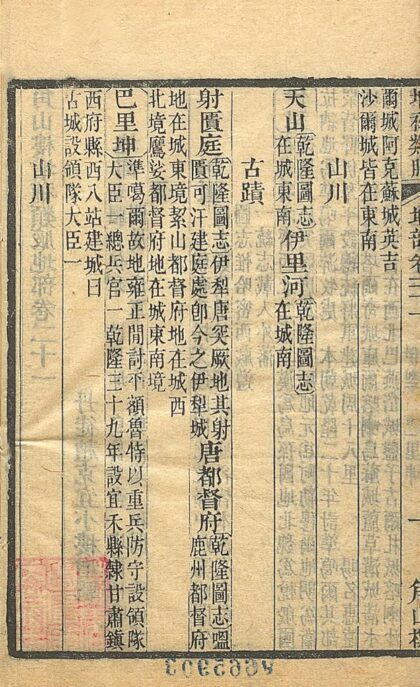 爾城阿克蘇城英吉
沙爾城皆在城南
山川
天山乾隆圖志在城東南伊里河乾隆圖志在城南
古蹟
射匱庭乾隆圖志伊犁唐突厥地其射匱可汗建庭處卽今之伊犁城唐都督府乾隆圖志嗢鹿州都督府
地在城東境絜山都督府地在城西
北境鷹娑都督府地在城東南境
巴里坤準噶爾故地雍正閒討平額魯特以重兵防守設領隊大臣一總兵官一乾隆三十九年設宜禾縣隸甘肅鎮
西府縣西八站建城曰
古城設領隊大臣一
山川